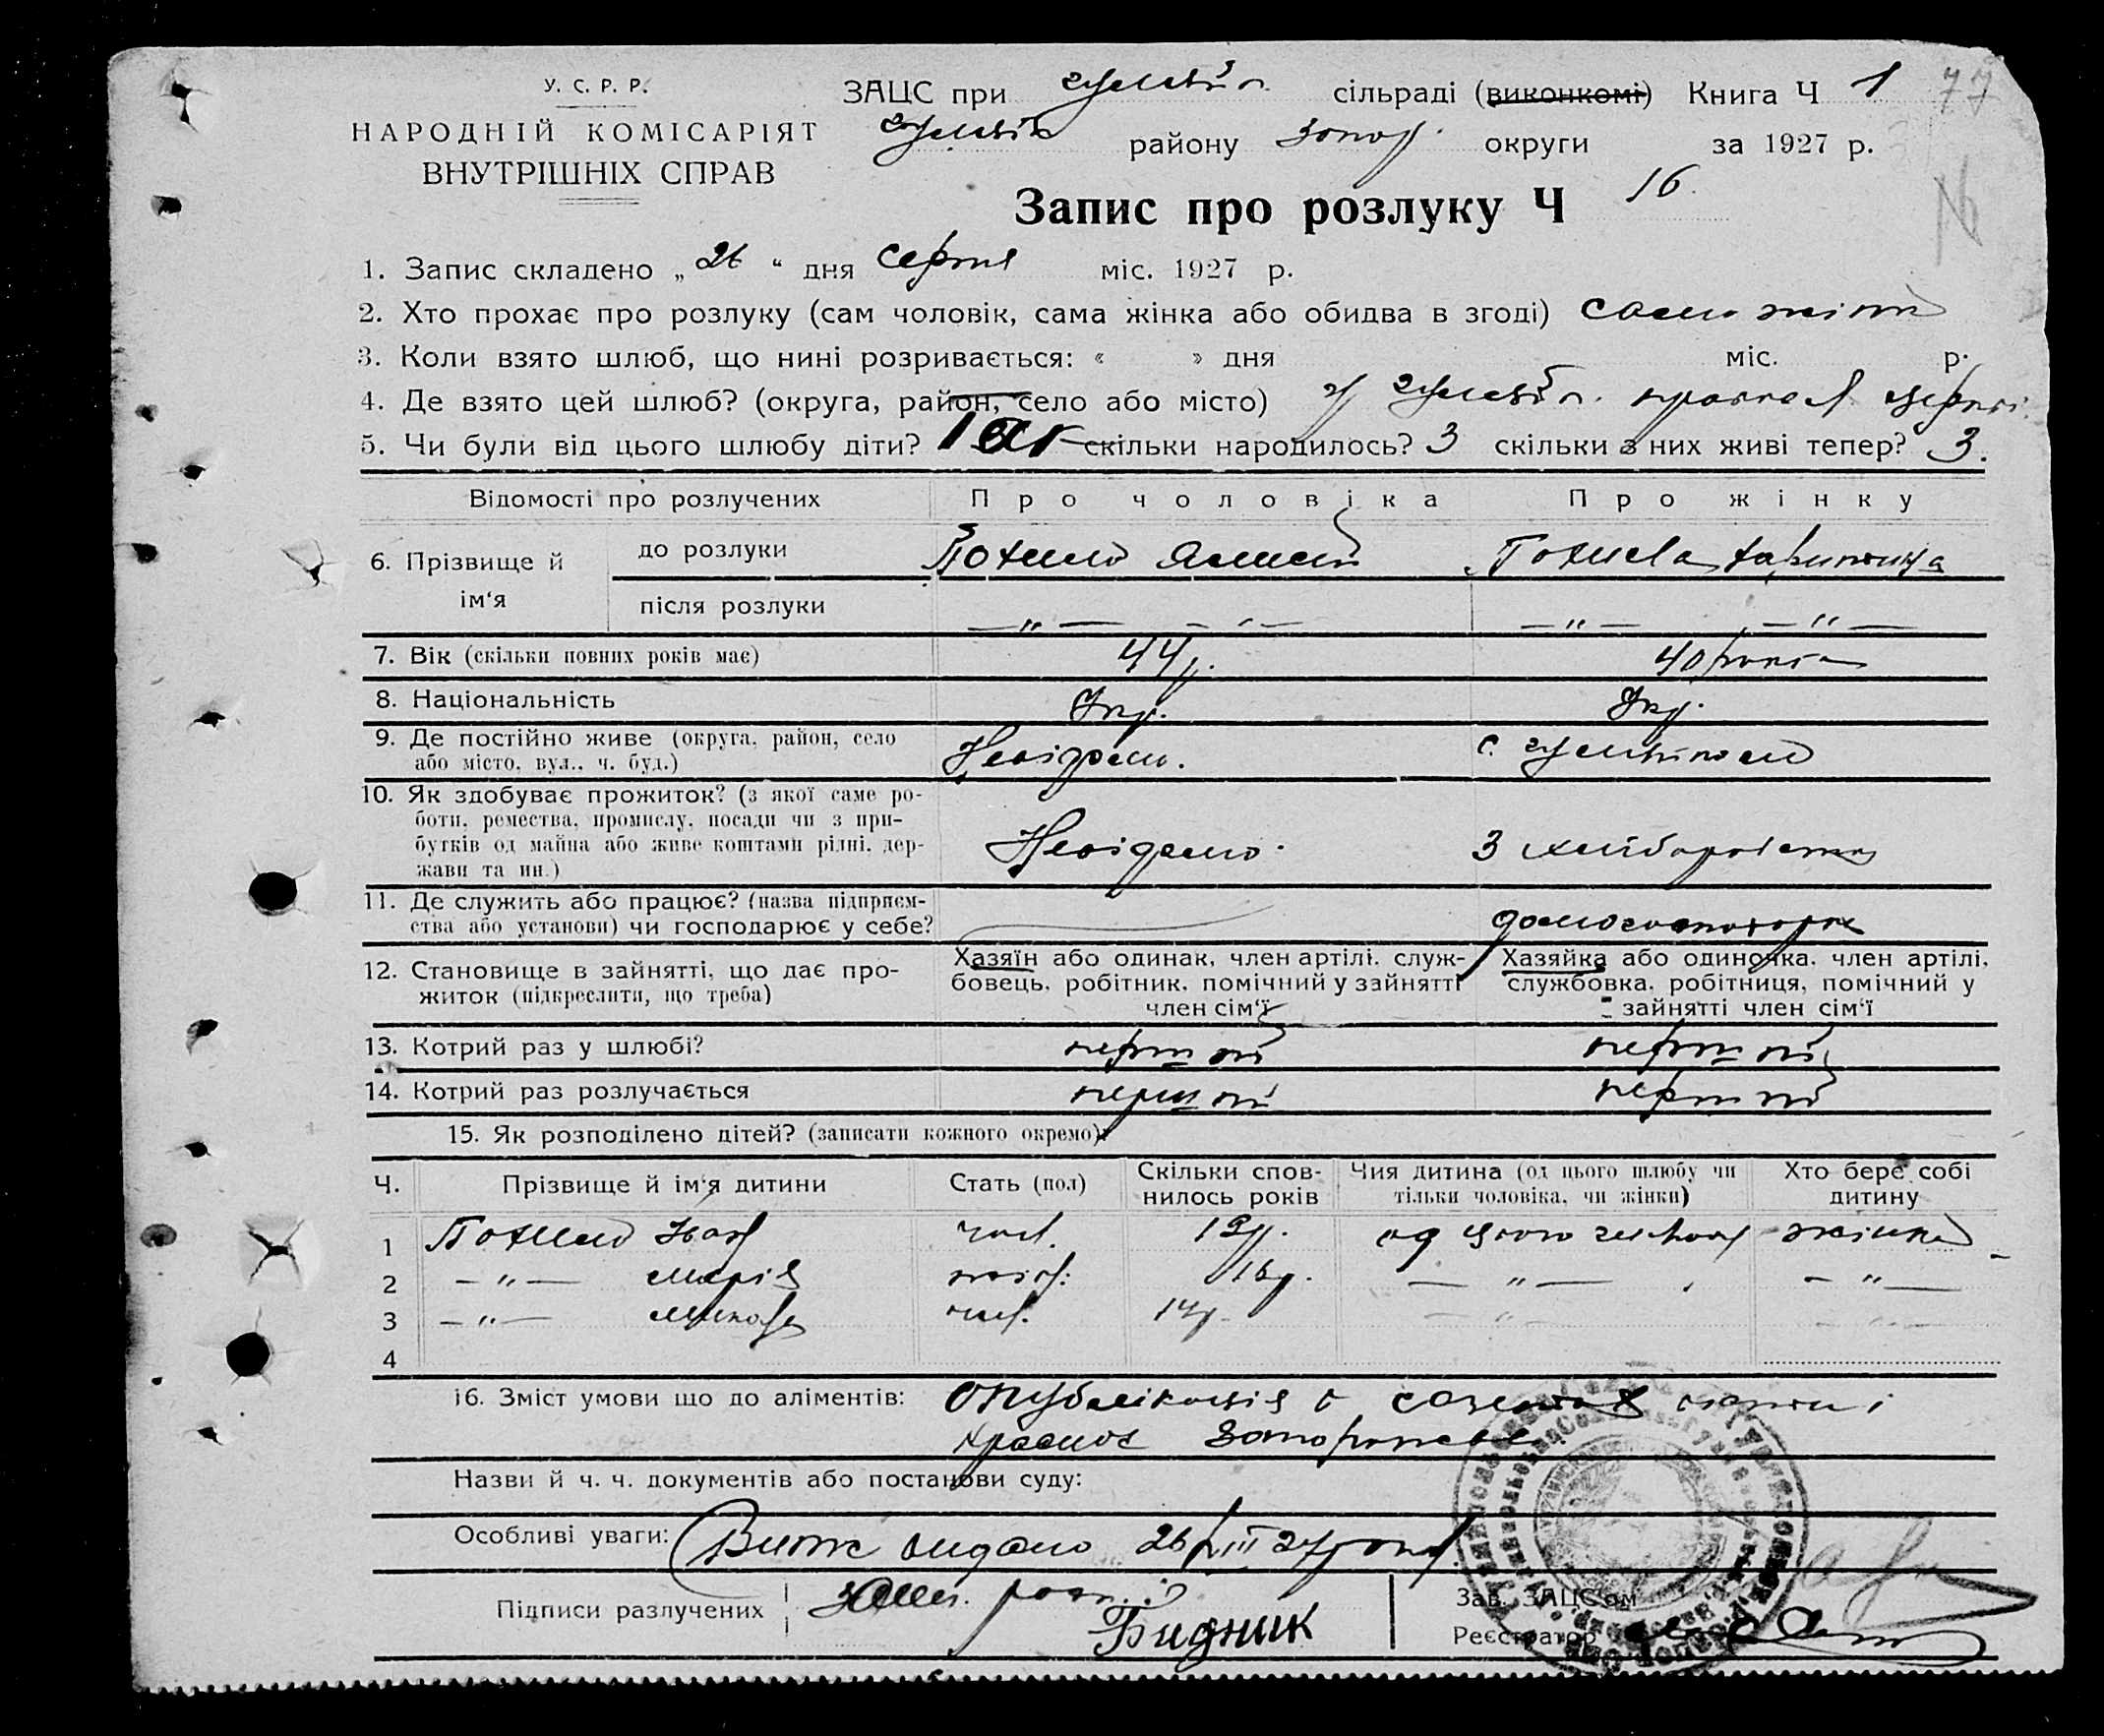 У. С. Р. Р.
НАРОДНІЙ КОМІСАРІЯТ
ВНУТРІШНІХ СПРАВ
ЗАЦС при сільраді (виконкомі) Книга Ч 1 77
району Запор. округи за 1927 р.
Запис про розлуку Ч 16
1. Запис складено „ 26 “ дня серпня міс. 1927 р.
2. Хто прохає про розлуку (сам чоловік, сама жінка або обидва в згоді) сама жінка
3. Коли взято шлюб, що нині розривається: « » дня міс. р.
4. Де взято цей шлюб? (округа, район, село або місто) у
5. Чи були від цього шлюбу діти? Так скільки народилось? 3 скільки з них живі тепер? 3.
Відомості про розлучених Про чоловіка Про жінку
6. Прізвище й ім‘я
до розлуки Похила
після розлуки —〃— —〃— —〃— —〃—
7. Вік (скільки повних років має) 44 р. 40 років
8. Національність Укр. Укр.
9. Де постійно живе (округа, район, село або місто, вул., ч. буд.) Невідомо. с.
10. Як здобуває прожиток? (з якої саме ро-
боти, ремества, промислу, посади чи з при-
бутків од майна або живе коштами рідні, дер-
жави та ин.) Невідомо. З хліборобства
11. Де служить або працює? (назва підприєм-
ства або установи) чи господарює у себе?
12. Становище в зайнятті, що дає про-
житок (підкреслити, що треба)
Хазяїн або одинак, член артілі, служ-
бовець, робітник, помічний у зайнятті
член сім‘ї
Хазяйка або одиночка, член артілі,
службовка, робітниця, помічний у
зайнятті член сім‘ї
13. Котрий раз у шлюбі? перший перший
14. Котрий раз розлучається перший перший
15. Як розподілено дітей? (записати кожного окремо):
Ч. Прізвище й ім‘я дитини Стать (пол) Скільки спов-
нилось років Чия дитина (од цього шлюбу чи
тільки чоловіка, чи жінки) Хто бере собі
дитину
1 Похило Іван чол. 19 р. од цього шлюбу жінка
2 —〃— Марія жін. 16 р. —〃— —〃—
3 —〃— Микола чол. 14 р. —〃— —〃—
4
16. Зміст умови що до аліментів: Опублікація в газетах
Красное Запорожье.
Назви й ч. ч. документів або постанови суду:
Особливі уваги: Витяг видано 26/VIII 27 р.
Підписи разлучених Бидник
Зав. ЗАЦС‘ом
Реєстратор